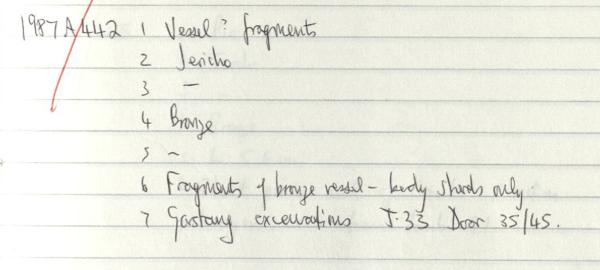 1987A442 1 Vessel? fragments
2 Jericho
3 —
4 Bronze
5 ~
6 Fragments of bronze vessel – body sherds only.
7 Garstang excavations J.33 Door 35/45.